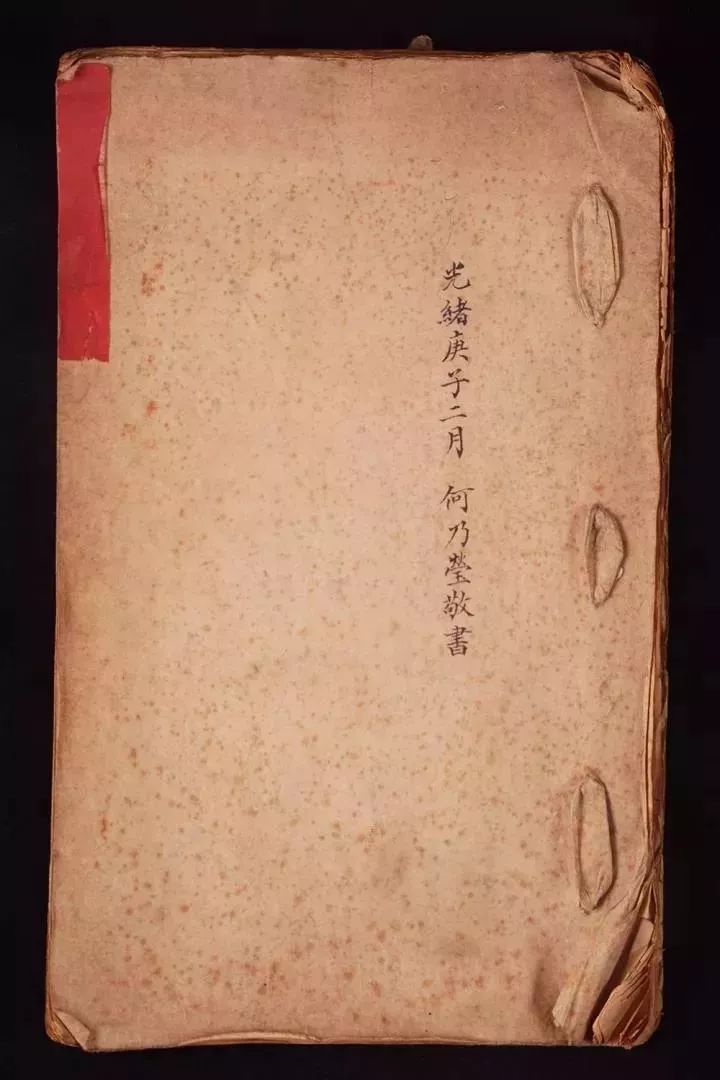 光緒庚子二月 何乃瑩敬書